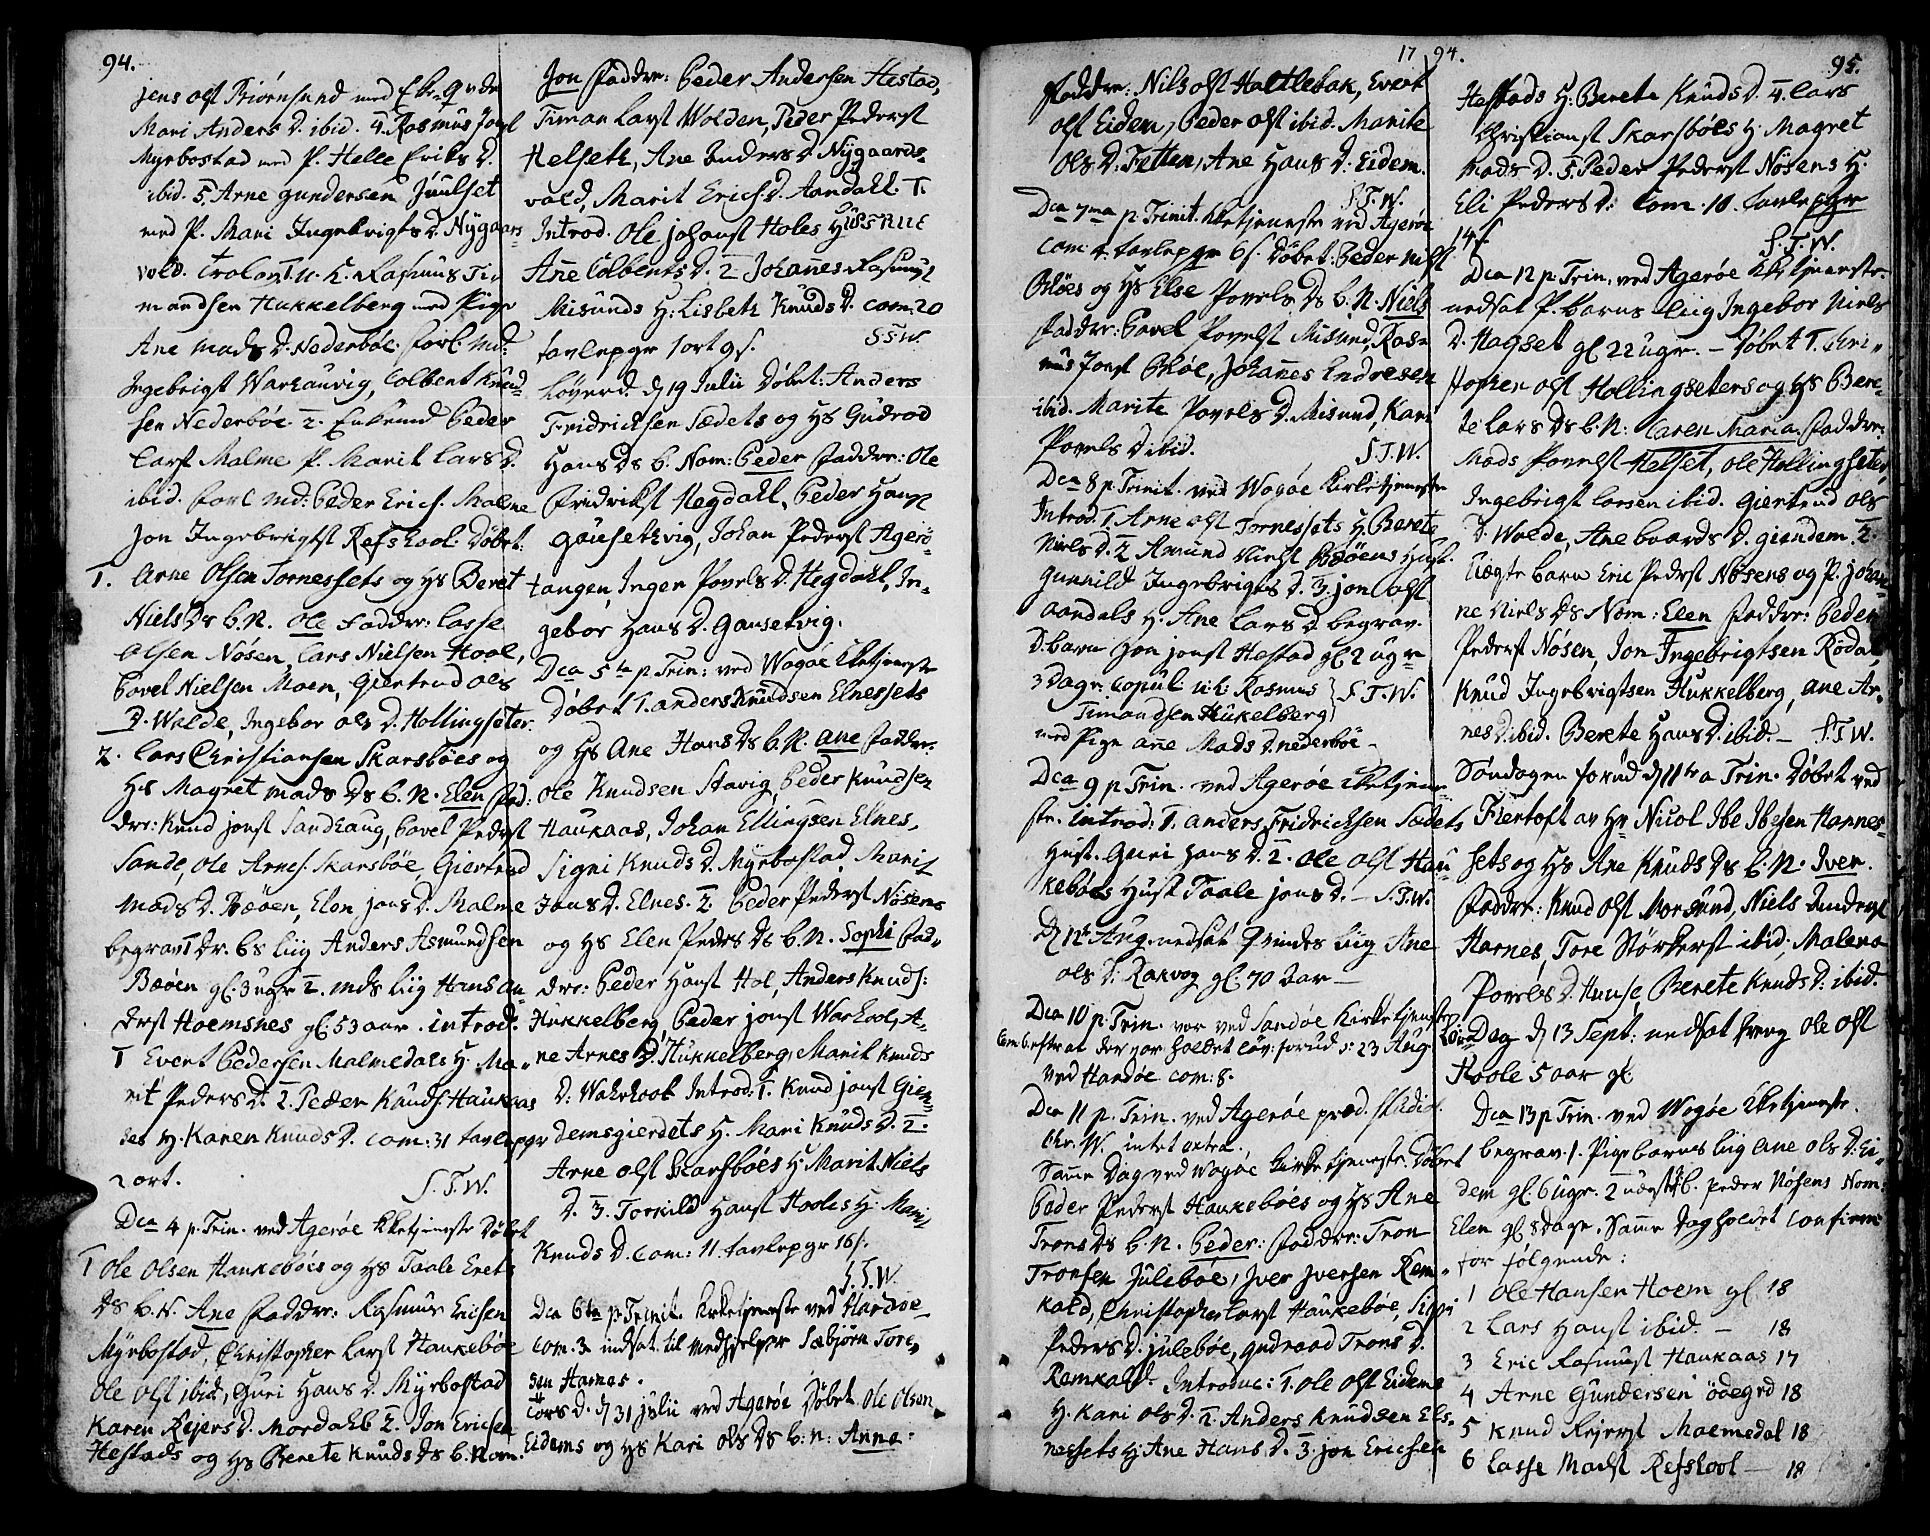 94.
jens ols Biørnsund med Eke Qvde
Mari Anders D. ibid. 4. Rasmus Jogl
Myrbostad med P. Helle Eriks D.
ibid. 5. Arne gundersen Juulset
med P. Mari Ingebrigts D. Nygaars-
vold. Trolov 1. u. K. Rasmus Ti-
mandsen Hukkelberg med Pige
Ane Mads D. Nederbøe. forl. md:
Ingebrigt Warhauvig, Colbent Knud-
sen Nederbøe. 2. Enkemd Peder
Larst Malme P. Marit Lars D.
ibid. forl. md: Peder Erics. Malme
Jon Ingebrigtst Refshool. Døbet:
1. Arne Olsen Tornessets og Hs Beret
Niels Ds b. N. Ole Faddre: Lasse
Olsen Nøsen, Lars Nielsen Hool,
Povel Nielsen Moen, Giertrud Ols
D. Walde, Ingebor Ols D. Hollingseter.
2. Lars Christiansen Skarsbøes og
Hs Magret Mads Ds b. N. Elen Fad:
dre: Knud jonst Sandhaug, Pavel Pederst
Sande, Ole Arnes. Skarsbøe, Giertrud
Mads D. Bøøen, Elen jons D. Malme
begrav 1 Dr. bs liig Anders Asmundsen
Bøøen gl: 3 ugr 2. mds liig Hans An-
derst Hoemsnes gl: 53 aar. introd.
1 Evert Pedersen Malmedals H. Ma-
rit Peders D. 2. Peder Knuds. Haukaas
ses H. Karen Knuds D. com: 31 tavlepgr
2 ort.
S. T. W.
Dca 4 p. Trin. ved Agerøe Kketjenste Døbet
1 Ole Olsen Haukebøes og Hs Taale Erics
Ds b. N. Ane Faddre: Rasmus Ericsen
Myrbostad, Christopher Larst Haukebøe
Ole Olst ibid, Guri Hans D. Myrbostad
Karen Rejers D. Mordahl 2. Jon Ericsen
Hestads og Hs Berete Knuds Ds b. Nom.
Jon Faddre: Peder Andersen Hestad,
Timan Larst Wolden, Peder Pederst
Helseth, Ane Anders D. Nygaards-
vold, Marit Erics D. Aandahl. 1.
Introd. Ole Johanst Holes Hustrue
Ane Colbents D. 2 Johanes Rasmust
Misunds H: Lisbeth Knuds D. com: 20
tavlepgr 1 ort 9 s. S. T. W.
Løverd. d 19 Julii Døbet: Anders
Fridricksen Sædets og Hs Gudrod
Hans Ds b. Nom: Peder Faddre: Ole
Fridrikst Hegdahl, Peder Hanst
Gausethvig, Johan Pederst Agerö-
tangen, Inger Povels D. Hegdahl, In-
gebor Hans D. Gausetvig.
Dca 5te p. Trin: ved Wogøe Kketjenste
Døbet 1. Anders Knudsen Elnessets
og Hs Ane Hans Ds b. N. Ane Faddre:
Ole Knudsen Stavig, Peder Knudsen
Haukaas, Johan Ellingsen Elnes,
Signi Knuds D. Myrbostad, Marit
Jons D. Elnes. 2 Peder Pederst Nøsens
og Hs Elen Peders Ds b. N. Sophi Fad-
dre: Peder Hanst Hol, Anders Knuds:
Hukkelberg, Peder Jonst Warhool, A-
ne Arnes D. Hukkelberg, Marit Knuds
D: Wahrhool. Introd: 1. Knud jonst Gien-
demsgierdets H. Mari Knuds D. 2.
Arne Olst Skarsbøes H: Marit Niels
D. 3. Torkild Hanst Hooles H: Mari
Knuds D. com: 11. tavlepgr 16 s.
S. T. W.
Dca 6ta p. Trinit. Kirketjenste ved Harøe
com: 3 indsat. til Medhjelper Sæbjørn Tore-
sen Harnes.
Tors D. d 31 julii ved Agerøe Døbet Ole Olsen
Eidems og Hs Kari Ols Ds b. n: Anne:
1794.
Faddre: Nils Olst Haltlebak, Evert
Olst Eidem, Peder Olst ibid. Marite
Ols D. Tetten, Ane Hans D: Eidem.
S. T. W.
Dca 7ma p. Trinit. Kketjeneste ved Agerøe
com: 4. tavlepgr 6 s. Døbet: Peder Nilst
Ohøes og Hs Else Povels Ds b. N. Niels
Faddre: Pavel Povelst Misund, Ras-
mus Jonst Ohøe, Johanes Endresen
ibid. Marite Povels D. Misund, Kari
Povels D ibid. S. T. W.
Dca 8 p. Trinit. ved Wogøe Kirketjenesten
Introd. 1. Arne Olst Tornessets H. Berete
Niels D. 2 Amund Nielst Bøøens Hust.
Gunnild Ingebrigts D. 3. jon Olst
Aandals H. Ane Lars D. begrav.
D. barn Jon jonst Hestad gl. 2 ugr
3 Dagr. Copul. u. k: Rasmus
Timandsen Hukelberg S. T. W.
med Pige Ane Mads D. nederbøe -
Dca 9 p Trin. ved Agerøe Kketjene-
ste. Introd. 1. Anders Fridricksen Sædets
Hust. Guri Hans D. 2. Ole Olst Hau-
kebøes Hust Taale jons D. - S. T. W.
D 12te Aug. nedsat Qvindes liig Ane
Ols D. Rakvog gl. 70 aar -
Dca 10 p. Trin. var ved Sandøe Kirketjenste
Com: 6. efter at der var holdet Løv: forud d: 23 Aug
ved Harøe com: 8.
Dca 11 p. Trin. ved Agerøe præd. Studios.
Chr. W. intet extra.
Same Dag ved Wogøe Kirketjeneste. Døbet
Peder Pederst Haukebøes og Hs Ane
Trons Ds b. N. Peder: Faddre: Tron
Tronsen Julebøe, Iver Iversen Rem-
kald, Christopher Larst Haukebøe, Siggri
Peders D. julebøe, Gudraad Trons D.
Remkald. Introduc: 1. Ole Olst Eidems
H. Kari Ols D. 2 Anders Knudsen El-
nessets H: Ane Hans D. 3. jon Ericsen
95.
Hestads H: Berete Knuds D. 4. Lars
Christianst Skarsbøes H. Magret
Mads D. 5. Peder Pederst Nøsens H.
Eli Peders D: Com. 10. tavlepgr
14 s. S. T. W.
Dca 12 p Trin. ved Agerøe Kketjenste
nedsat P. barns liig Ingebor Niels
D. Hagset gl 22 ugr. - Døbet 1. Chri-
stopher Olst Hollingseters og Hs Bere-
te Lars Ds b. N: Caren Maria. Faddre:
Mads Povelst Helset, Ole Hollingseter,
Ingebrigt Larsen ibid. Giertrud Ols
D. Walde, Ane Baards D. Giendem. 2.
Uægte barn Eric Pederst Nøsens og P. Johan-
ne Niels Ds Nom: Elen Faddre: Peder
Pederst Nøsen, Jon Ingebrigtsen Rødal,
Knud Ingebrigtsen Hukkelberg, Ane Ar-
nes D. ibid. Berete Hans D. ibid. - S. T. W.
Søndagen forud d 11te a Trin. Døbet ved
Fiertoft av Hr Nicol Ibe Ibesen Harnes-
sets og Hs Ane Knuds Ds b. N. Iver.
Faddre: Knud Olst Morsund, Niels Anderst
Harnes, Tore Størkerst ibid, Malena
Povels D. Huuse, Berete Knuds D. ibid.
Løver Dag d 13 Sept: nedsat Dreng Ole Olst
Hoole 5 aar gl.
Dca 13 p Trin. ved Wogøe Kketjenste.
begrav. 1. Pige barns liig Ane Ols D. Ei-
dem gl. 6 ugr. 2 uægte b. Peder Nøsens Nom:
Elen gl 8 dage. Same Dag holdet Confirm:
for følgende:
1 Ole Hansen Hoem gl. 18
2 Lars Hanst ibid. - 18
3 Eric Rasmust Haukaas 17
4 Arne Gundersen ödegrd 18
5 Knud Rejerst Maemedal 18
6 Lasse Madst Refshool - 18